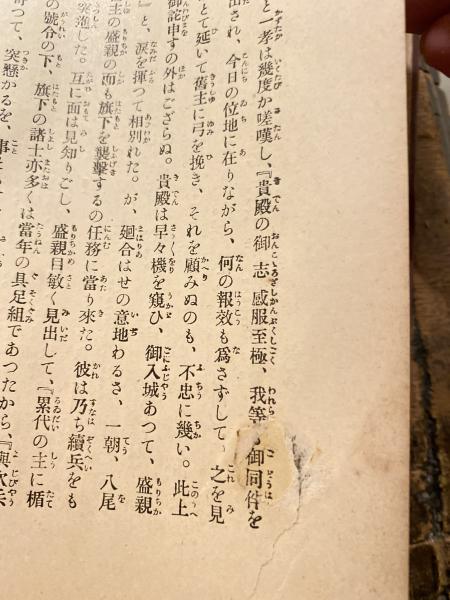 と一孝は幾度か嗟嘆し、『貴殿の御志感服至極、我等も御同件を
出され、今日の位地に在りながら、何の報效も爲さずして、之を見
とて延いて舊主に弓を挽き、それを顧みぬのも、不忠に幾い。此上
御詫申すの外はござらぬ。貴殿は早々機を窺ひ、御入城あつて、盛親
』と、涙を揮つて相別れた。が、廻合はせの意地わるさ、一朝、八尾
主の盛親の面も旗下を襲擊するの任務に當り來た。彼は乃ち續兵をも
突進した。互に面は見知りごし、盛親目敏く見出して、『累代の主に楯
の號令の下、旗下の諸士亦多くは當年の具足組であつたから、『與次兵
寄つて、突懸かるを、事